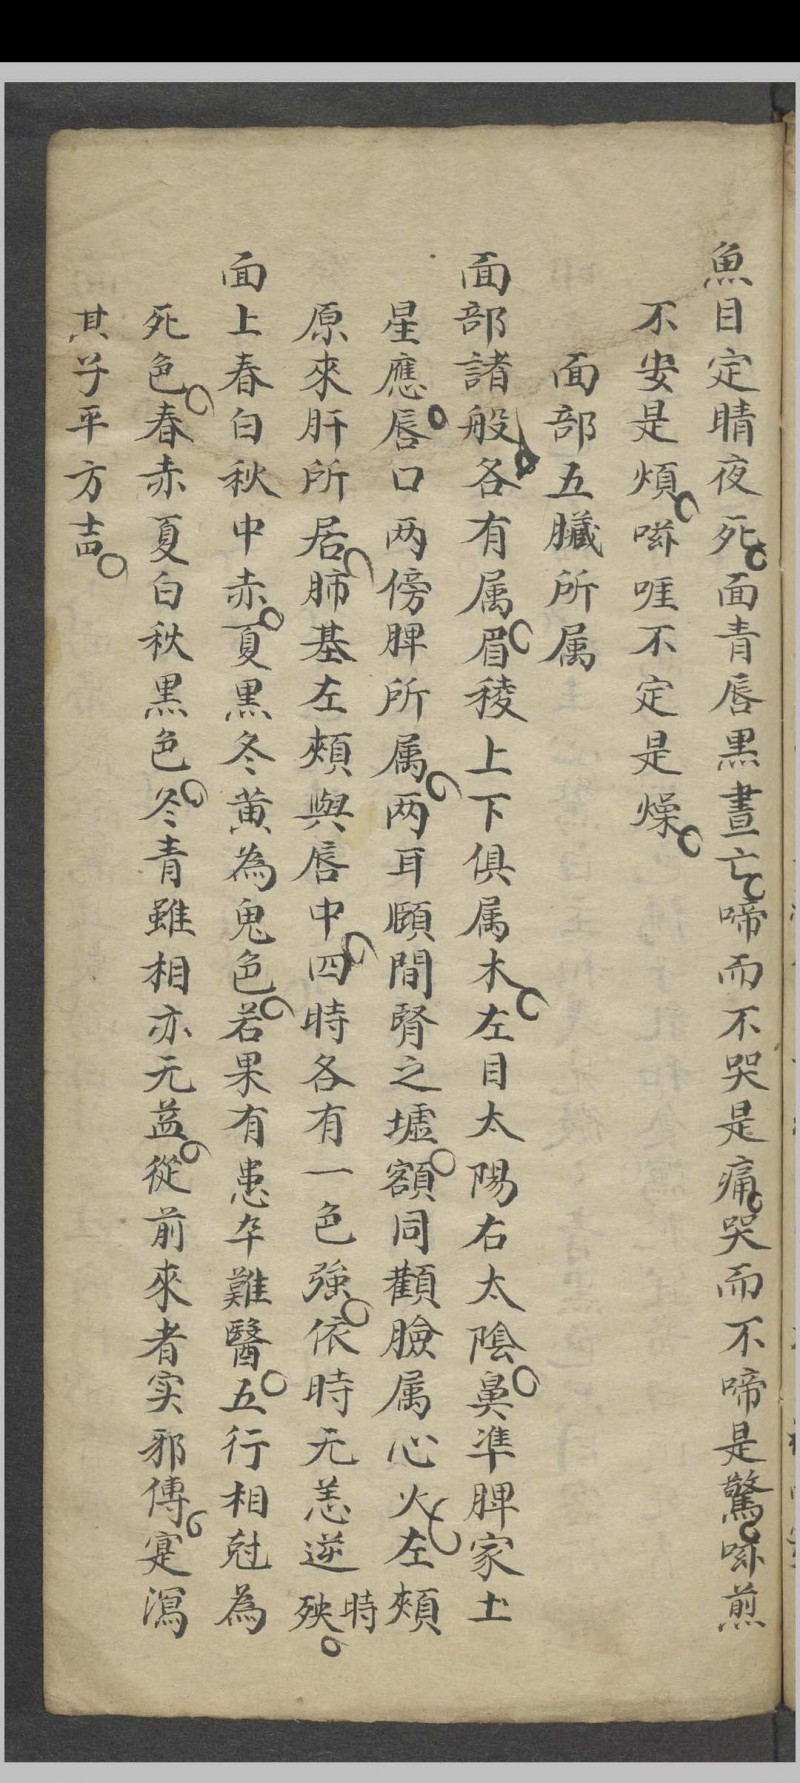 魚目定睛夜死面青唇黑晝亡啼而不哭是痛哭而不啼是驚啉煎
不安是煩啉哐不定是燥
面部五臟所属
面部諸般各有属眉稜上下俱属木左目太陽右太陰鼻準脾家土
星應唇口两傍脾所属两耳頤間腎之墟額同顴臉属心火左頰
原來肝所居肺基左頰與唇中四時各有一色強依時无恙逆時殃
面上春白秋中赤夏黑冬黄為鬼色若果有患卒難醫五行相尅為
死色春赤夏白秋黑色冬青雖相亦无益從前來者实邪傳寔瀉
其子平方吉